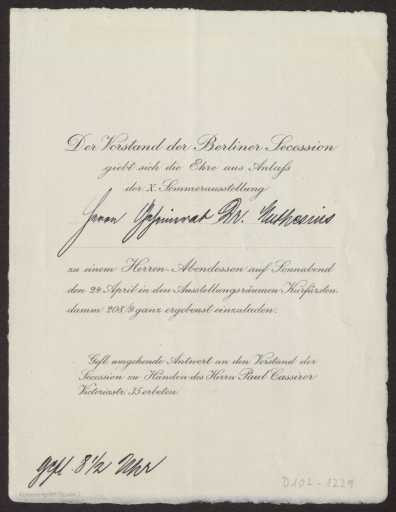 Der Vorstand der Berliner Secession
giebt sich die Ehre aus Anlaß
der X. Sommerausstellung
Herrn Geheimrat Dr. Muthesius
zu einem Herren-Abendessen auf Sonnabend
den 24 April in den Ausstellungsräumen Kurfürsten-
damm 208/9 ganz ergebenst einzuladen.
Gefl. umgehende Antwort an den Vorstand der
Secession zu Händen des Herrn Paul Cassirer
Victoriastr. 35 erbeten
gefl. 8 1/2 Uhr
D102-1229